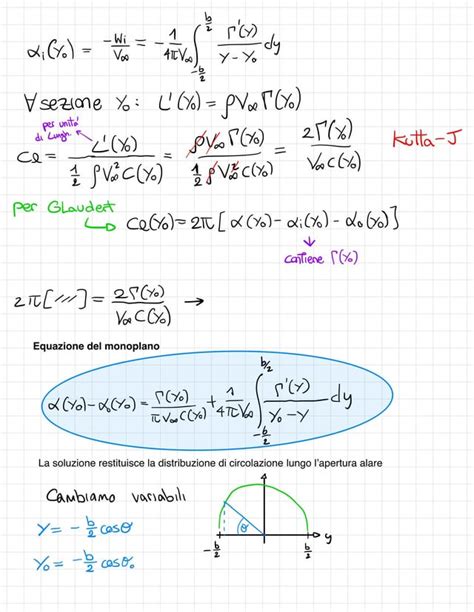 αᵢ(y₀) = -wᵢ/V∞ = - 1/(4πV∞) ∫_{-b/2}^{b/2} Γ'(y)/(y-y₀) dy
∀ sezione y₀: L'(y₀) = ρV∞Γ(y₀)
per unità di lungh.
Cℓ = L'(y₀)/(1/2 ρV∞² c(y₀)) = ρV∞Γ(y₀)/(1/2 ρV∞² c(y₀)) = 2Γ(y₀)/(V∞ c(y₀))
Kutta-J
per Glaudert
Cℓ(y₀) = 2π[α(y₀) - αᵢ(y₀) - α₀(y₀)]
contiene Γ(y₀)
2π[///] = 2Γ(y₀)/(V∞ c(y₀)) →
Equazione del monoplano
α(y₀) - α₀(y₀) = Γ(y₀)/(πV∞c(y₀)) + 1/(4πV∞) ∫_{-b/2}^{b/2} Γ'(y)/(y₀-y) dy
La soluzione restituisce la distribuzione di circolazione lungo l'apertura alare
Cambiamo variabili
y = -b/2 cosθ
y₀ = -b/2 cosθ₀
θ
-b/2
b/2
y